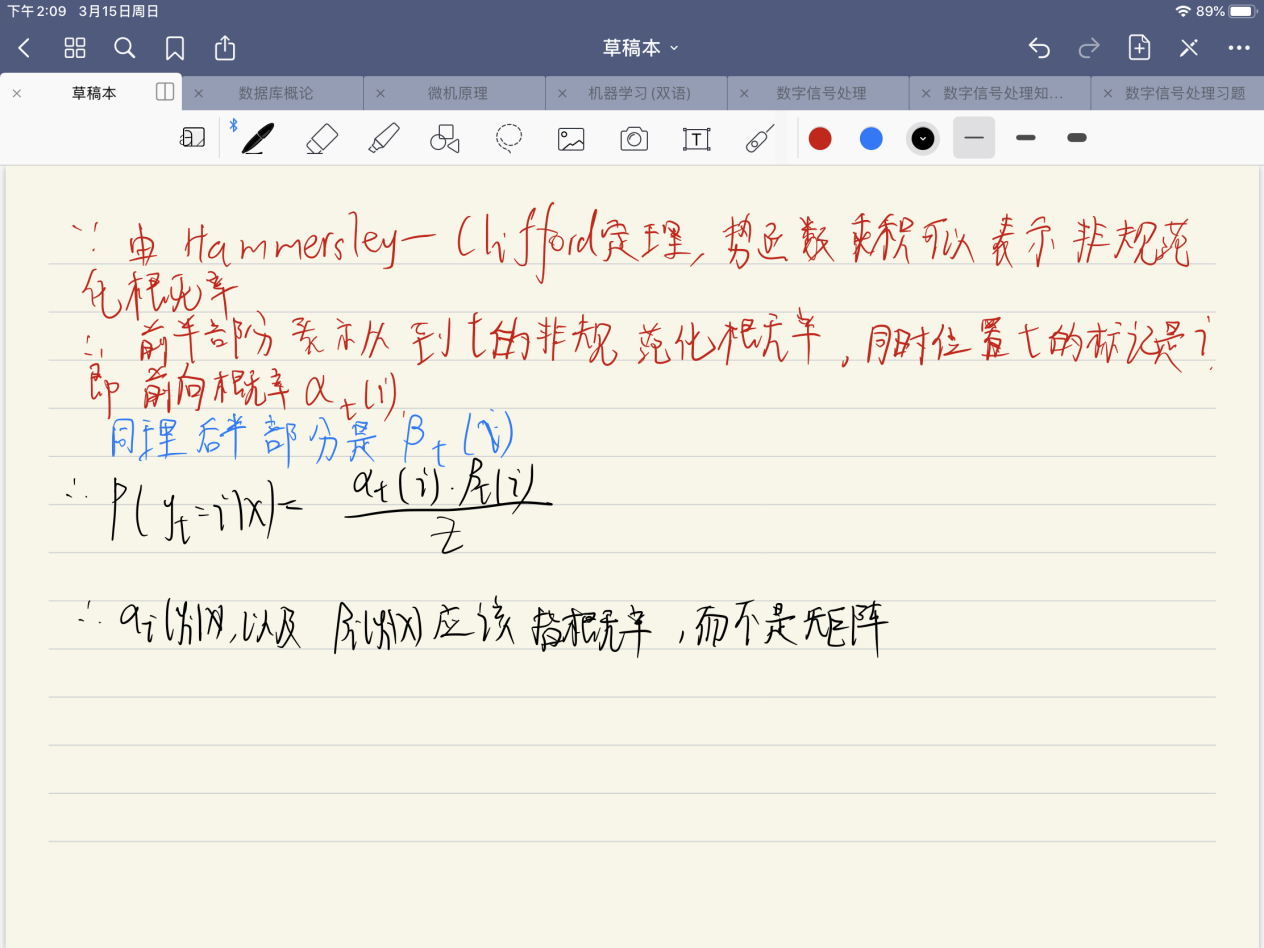 下午2:09 3月15日周日 89%
草稿本
草稿本 数据库概论 微机原理 机器学习(双语) 数字信号处理 数字信号处理知... 数字信号处理习题
∵ 由 Hammersley—Clifford定理, 势函数乘积可以表示非规范
化概率
∴ 前半部分表示从 到t的非规范化概率, 同时位置t的标记是i
即 前向概率 α_t(i)
同理后半部分是 β_t(i)
∴ P(y_t=i|x)= α_t(i)·β_t(i)
Z
∴ α_i(y_i|x), 以及 β_i(y_i|x) 应该指概率, 而不是矩阵